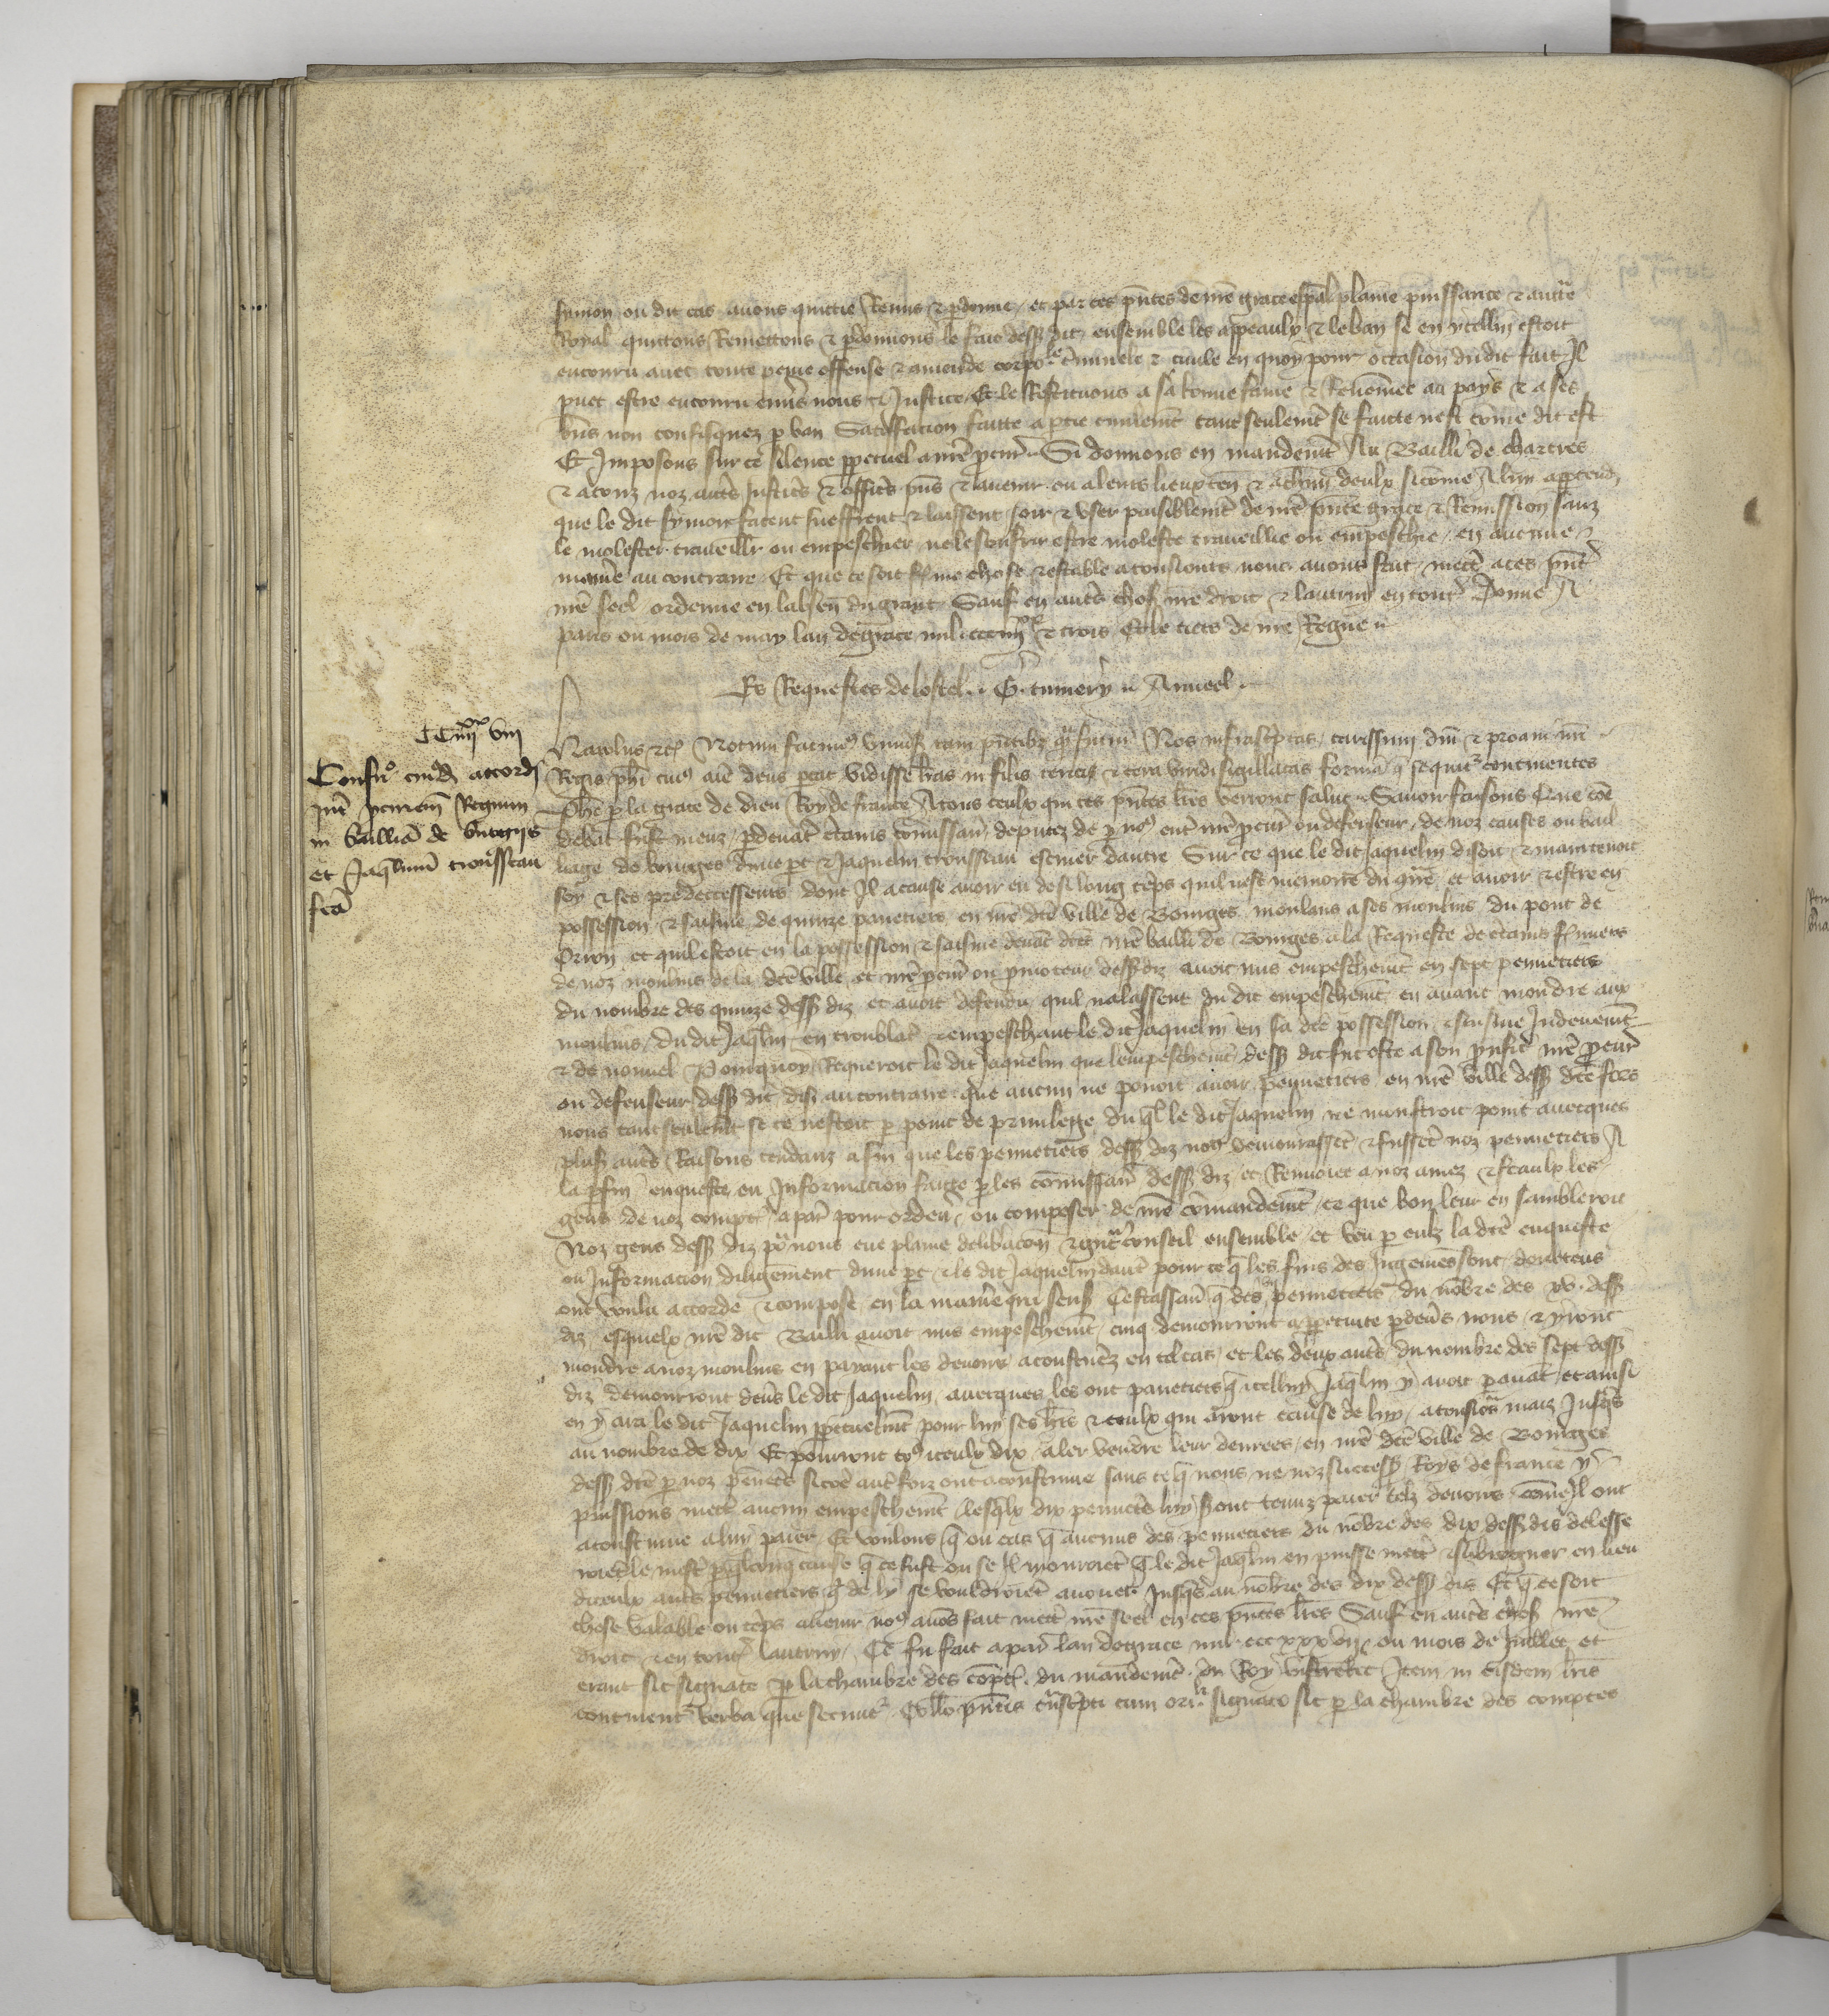 symon ou dit cas avons quittie Remis & pdonne et par ces pntes de nre grace espal plaine puissance & auctte
Royal quittons Remettons & pdonnons le fait dess dit ensemble les appeaulx & le ban se en ycellui estoit
encouru avec toute peine offense & amende corporele criminele & civile en quoy pour occasion du dit fait Il
puet estre encouru envs nous & Justice Et le Restituons a sa bonne fame & Renomee au pays & a ses
biens non confisquez p ban Satisfacion faitte a ptie civilemt tant seulemt se faitte nest come dit est
Et Imposons sur ce silence ppetuel a nre pcur Si donnons en mandemt Au Bailli de chartres
& a touz noz autes Justices & offices pns & avenir ou a leurs lieuxten & a chun deulx sicome A lui apptendra
que le dit symon facent sueffrent & laissent joir & user paisiblemt de nre pnte grace & Remission sanz
le molester traveillr ou empeschier ne le souffrir estre moleste traveillie ou empeschie en aucune
maniere au contraire Et que ce soit ferme chose & estable a tousiours nous avons fait mectre a ces pntes
nre seel ordenne en labsence du grant Sauf en autes choses nre droit & lautruy en toutes Donne A
paris ou mois de may lan de grace mil ccc iiiixx & trois Et le tiers de nre Regne
Es Requestes de lostel G. tumery Anneel
CCiiiixx viii
Confirmo cuiusda accordi
int pcurem Regium
in baillia de bituris
et Jaqlinum trousseau
fca
Karolus &c Notum facimus univsis tam pntibz q futuris Nos infrascriptas carissimi dni & proavi nri
Regis phi cuius aie deus pcat vidisse lras in filis sericis & cera viridi sigillatas formam q sequit continentes
Phe p la grace de dieu Roy de france A tous ceulx qui ces pntes lres verront salut Savoir faisons Que come
debat fust meuz pdevant ctains comissaires deputez de p nous entre nre pcur ou defenseur de noz causes ou bail
liage de bourges dune pt & Jaquelin trousseau escuier dautre Sur ce que le dit Jaquelin disoit & maintenoit
soy & ses predecesseurs dont Il a cause avoir eu de si long teps quil nest memoire du gre et avoir & estre en
possession & saisine de quinze panetiers en nre dte ville de Bourges moulans a ses moulins du pont de
Orron et quil estoit en la possession & saisine devant dte nre bailli de Bourges a la Requeste de ctains fermiers
de noz moulins de la dte ville et nre pcur ou pmoteur dess diz avoit mis empeschemt en sept pennetiers
du nombre des quinze dess diz et avoit defendu quil nalassent du dit empeschemt en avant moudre aux
moulins du dit Jaqlin en troublant & empeschant le dit Jaquelin en sa dte possession & saisine Indeuemt
& de nouvel Pourquoy Requeroit le dit Jaquelin que lempeschemt dess dit fut oste a son prufit nre pcur
ou defenseur dess dit dist au contraire que aucun ne povoit avoir pennetiers en nre ville dess dte fors
nous tant seulemt se ce nestoit p point de privilege du ql le dit Jaquelin ne monstroit point avecques
pluss autes Raisons tendanz afin que les pennetiers dess diz nous demourassent & fussent noz pennetiers A
la pfin enqueste ou Informacion faitte p les comissaires dess diz et Renvoiee a noz amez & feaulx les
gens de noz comptes a paris pour ordener ou composer de nre comandemt ce que bon leur en sambleroit
Noz gens dess diz po nous eue plaine delibacion & grant conseil ensemble et veu p eulz la dte enqueste
ou Informacion diligement dune pt & le dit Jaquelin dautre pour ce q les fins des Jugemens sont doubteus
ont voulu accorde & compose en la maniere qui sensuit Cest assavoir q des pennetiers du nobre des xv. dess
diz esquelx nre dit Bailli avoit mis empeschemt cinq demourront a ppetuite pdevers nous & yront
moudre a noz moulins en paiant les devoirs acoustumez en tel cas et les deux autes du nombre des sept dess
diz demourront devers le dit Jaquelin avecques les oit panetiers q icellui Jaqlin y avoit p avant et ainsi
en y ara le dit Jaquelin ppetuelmt pour luy ses hrs & ceulx qui aront cause de luy a tousiours maiz Jusqs
au nombre de dix Et pourront tous iceulx dix aler vendre leur denrees en nre dte ville de Bourges
dess dte p noz pennets sicome autrefoiz ont acoustume sans ce q nous ne noz success Roys de france y
puissions mettre aucun empeschemt lesqlx dix pennetiers luy sont tenuz paier telz devoirs come Il ont
acoustume a lui paier Et voulons q ou cas q aucuns des pennetiers du nobre des dix dess dis delesse
roiet le mestier p qlconq cause q ce fust ou se Il mouroiet q le dit Jaqlin en puisse mettre & subroguer en lieu
diceulx autes pennetiers q de luy se vouldroiet avouer Jusqs au nobre des dix dess dis Et q ce soit
chose valable ou teps avenir nous avons fait mettre nre seel en ces pntes lres Sauf en autes choses nre
droit & en toutes lautruy Ce fu fait a paris lan de grace mil ccc xxx vii ou mois de Juillet et
erant sic signate p la chambre des coptes du mandemt du Roy vistrebec Item in eisdem lris
continent verba que secunt Collo pntis tnscpti cum origli signato sic p la chambre des comptes